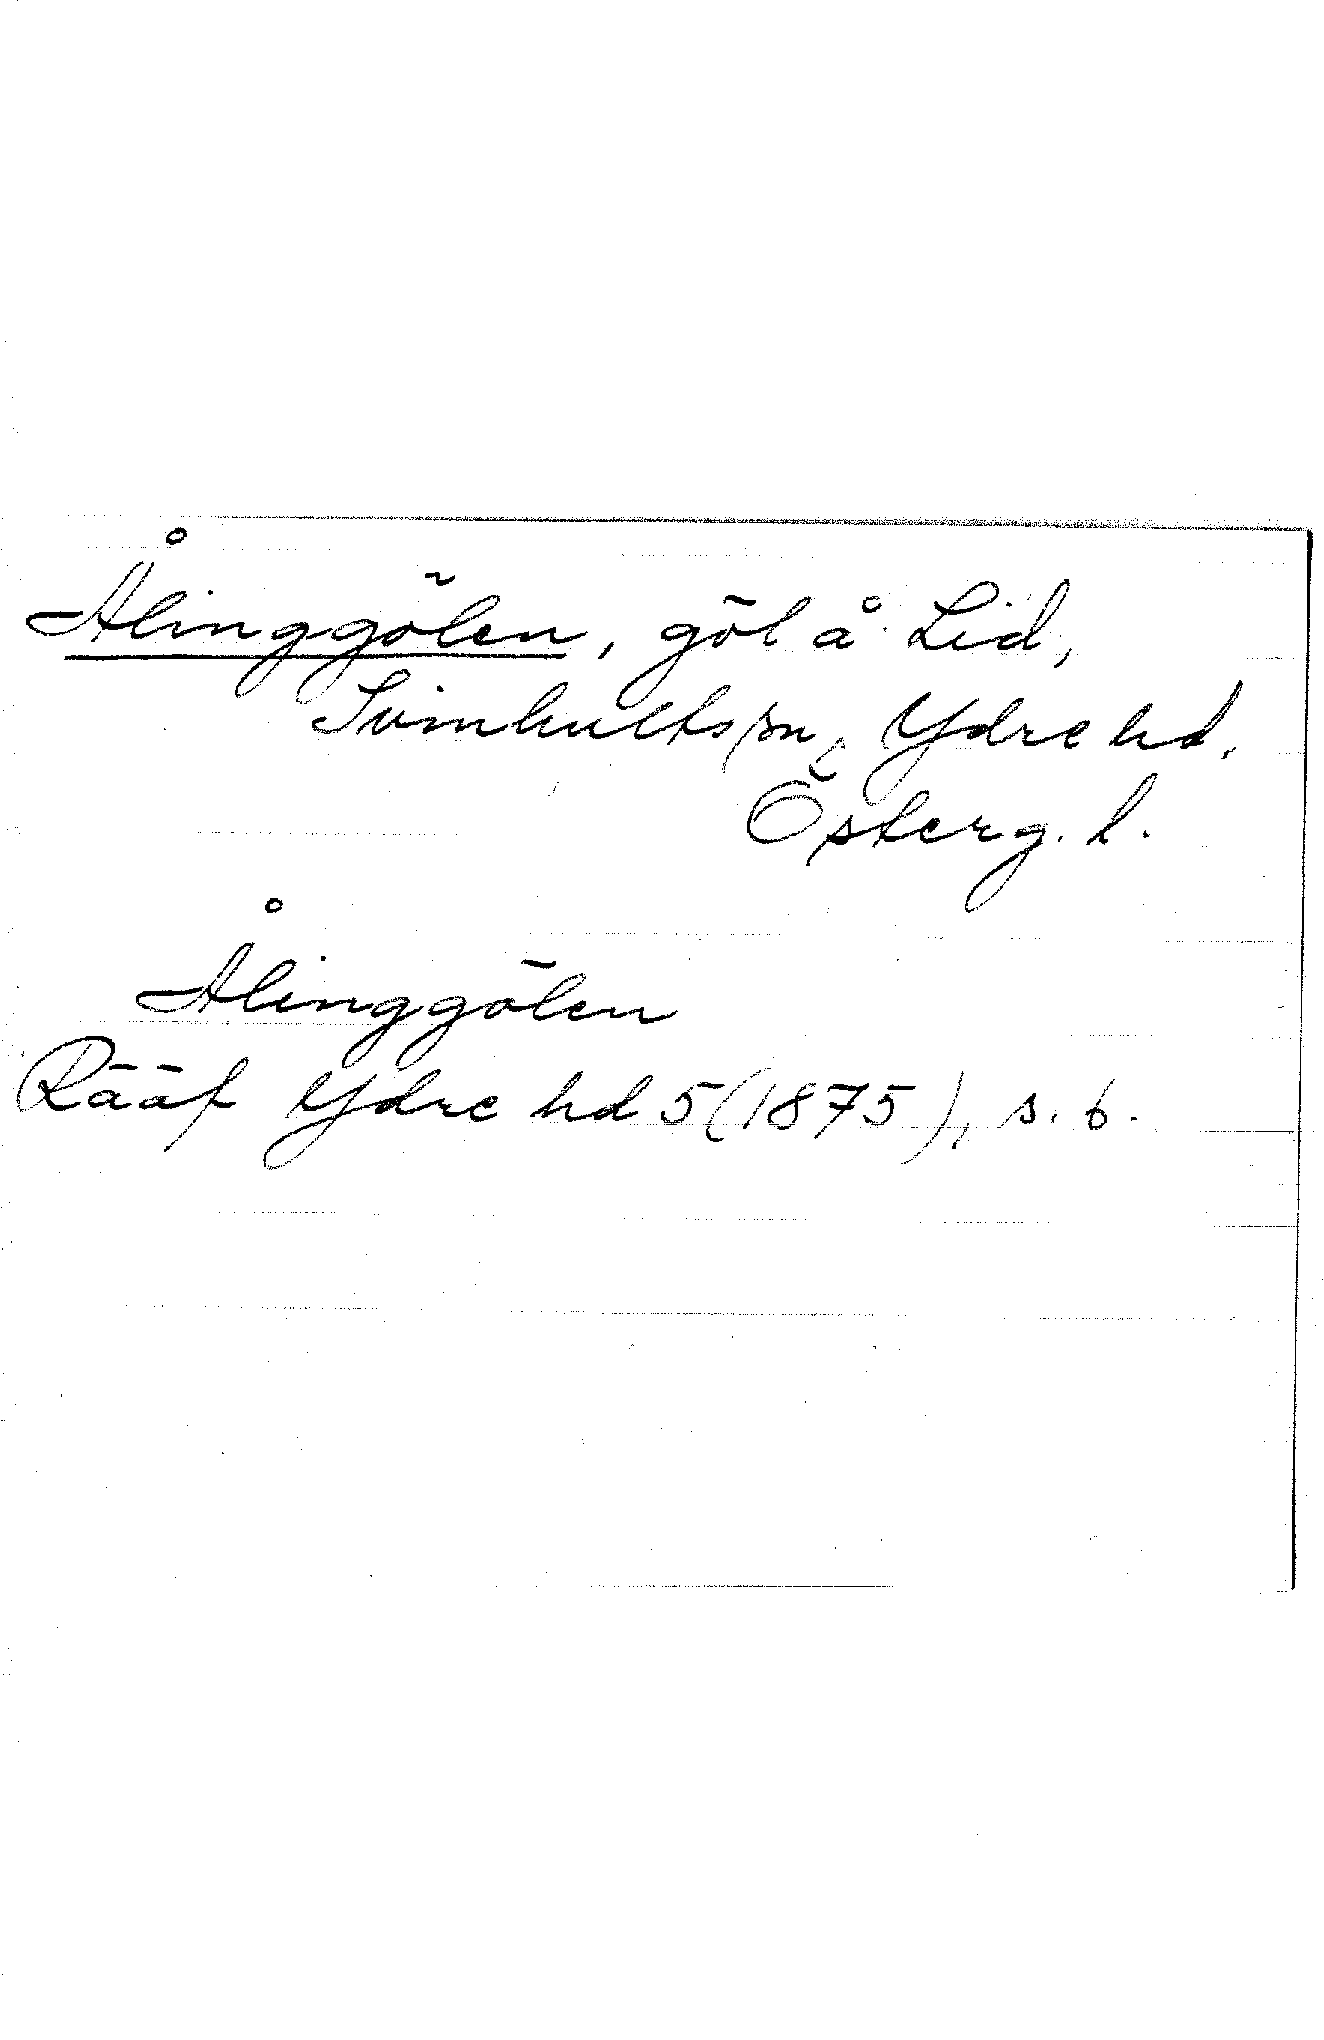 Ålinggölen, göl å Lid,
Svinhults sn, Ydre hd.
Österg. l.
Ålinggölen
Rääf Ydre hd 5 (1875), s. 6.